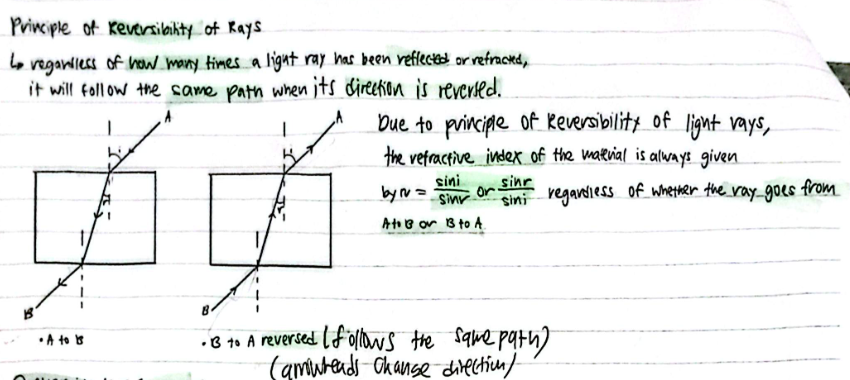 Principle of Reversibility of Rays
↳ regardless of how many times a light ray has been reflected or refracted,
it will follow the same path when its direction is reversed.
Due to principle of Reversibility of light rays,
the refractive index of the material is always given
by n = sini/sinr or sinr/sini regardless of whether the ray goes from
A to B or B to A
A
i
r
B
• A to B
A
i
r
B
• B to A reversed (follows the same path)
(arrowheads change direction)